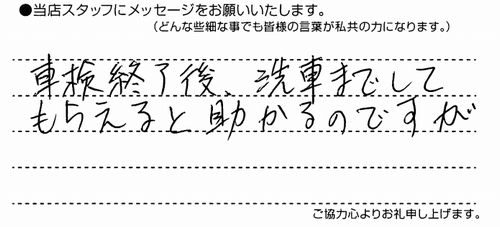 ●当店スタッフにメッセージをお願いいたします。
（どんな些細な事でも皆様の言葉が私共の力になります。）
車検終了後、洗車までして
もらえると助かるのですが
ご協力心よりお礼申し上げます。